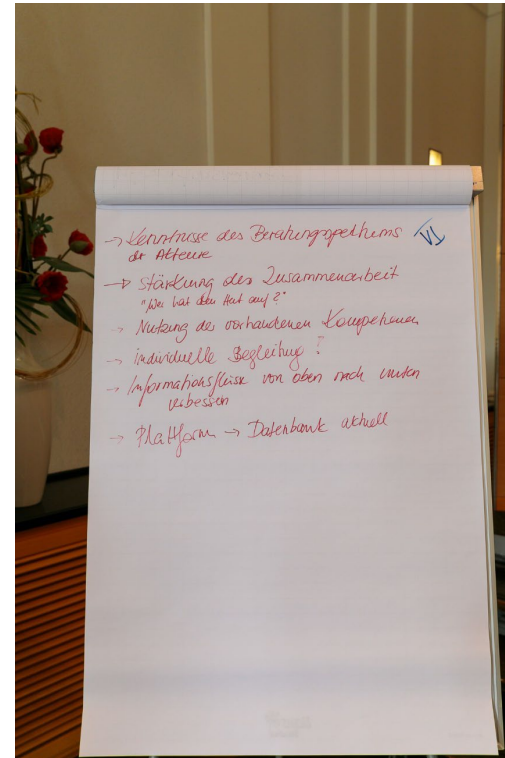 → Kenntnisse des Beratungsspektrums VI
der Akteure
→ Stärkung der Zusammenarbeit
"Wer hat den Hut auf?"
→ Nutzung der vorhandenen Kompetenzen
→ individuelle Begleitung?
→ Informationsflüsse von oben nach unten
verbessern
→ Plattform → Datenbank aktuell